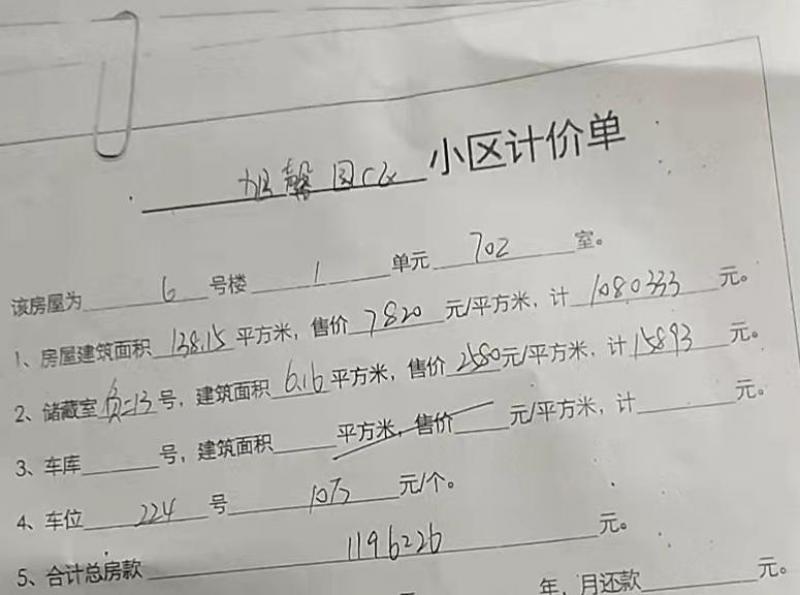 旭馨园C区小区计价单
该房屋为 6 号楼 1 单元 702 室。
1、房屋建筑面积 138.15 平方米，售价 7820 元/平方米，计 1080333 元。
2、储藏室负二13号，建筑面积 6.16 平方米，售价 2580 元/平方米，计 15893 元。
3、车库 号，建筑面积 平方米，售价 元/平方米，计 元。
4、车位 224 号 10万 元/个。
5、合计总房款 1196226 元。
年，月还款 元。